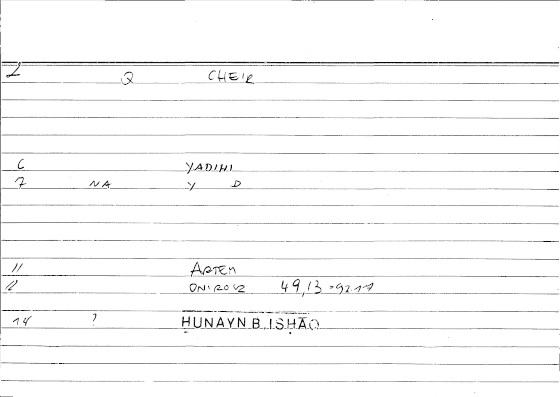 2 Q CHEIR
6 YADIHI
7 NA Y D
11 ARTEM
12 ONIROCR 49,13
14 ? ḤUNAYN B. ISḤĀQ